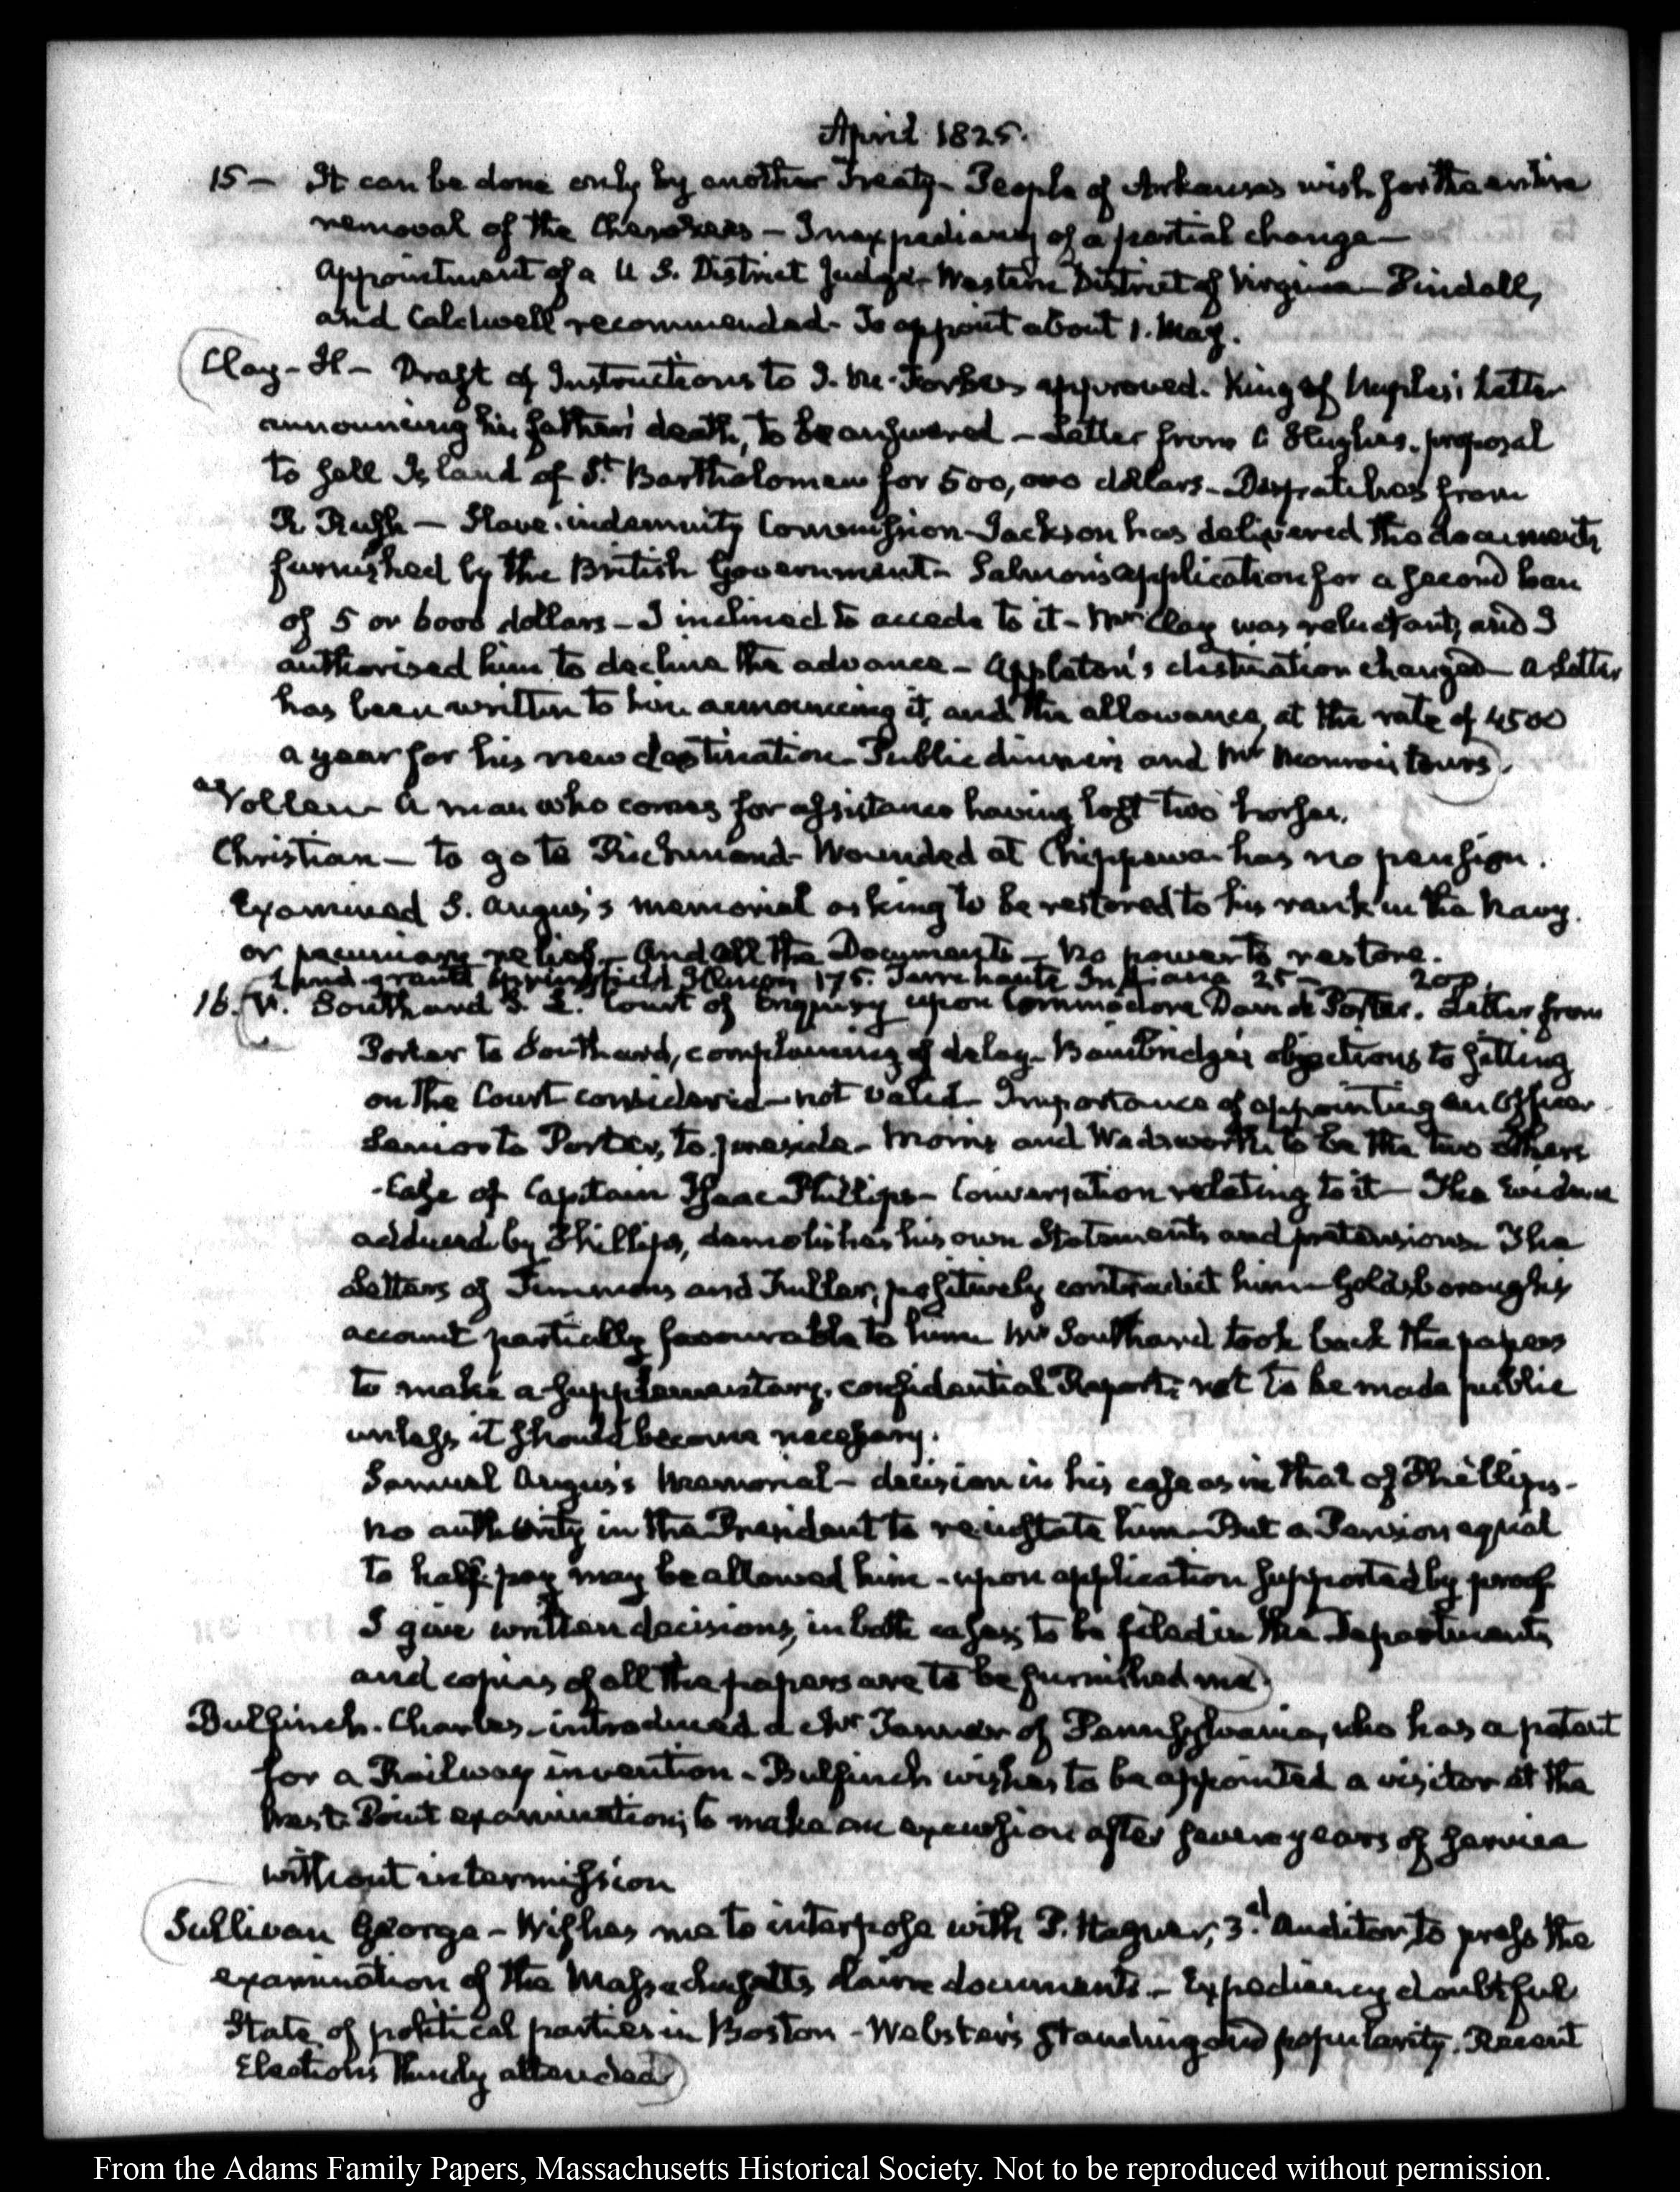 April 1825.
15 — It can be done only by another Treaty. People of Arkansas wish for the entire
removal of the Cherokees — Inexpediency of a partial change —
Appointment of a U S. District Judge. Western District of Virginia — Pindall,
and Caldwell recommended. To appoint about 1. May.
Clay — H — Draft of Instructions to J. M. Forbes approved. King of Naples's Letter
announcing his father's death, to be answered — Letter from C Hughes. proposal
to sell Island of St. Bartholomew for 500,000 dollars — Dispatches from
R Rush — Slave indemnity Commission — Jackson has delivered the documents
furnished by the British Government — Salmon's application for a second loan
of 5 or 6000 dollars — I inclined to accede to it — Mr Clay was reluctant, and I
authorised him to decline the advance — Appleton's destination changed — A Letter
has been written to him announcing it, and the allowance, at the rate of 4500
a year for his new destination. Public dinners and Mr Monroe's tours.
Vollen — A man who comes for assistance having lost two horses.
Christian — to go to Richmond — Wounded at Chippewa — has no pension.
Examined S. Angus's memorial asking to be restored to his rank in the Navy.
or pecuniary relief — And all the Documents — No power to restore.
Land grants Springfield Illinois 175. Terre haute Indiana 25 — 200.
16. V. Southard S. L. Court of Enquiry upon Commodore David Porter. Letter from
Porter to Southard, complaining of delay — Bainbridge's objections to sitting
on the Court considered — not valid — Importance of appointing an Officer
Senior to Porter, to preside — Morris and Wadsworth to be the two others
- Case of Captain Isaac Phillips — Conversation relating to it — The Evidence
adduced by Phillips, demolishes his own Statements and pretensions. The
Letters of Timmons and Fuller, positively contradict him — Goldsborough's
account partially favourable to him Mr Southard took back the papers
to make a supplementary, confidential Report, not to be made public
unless it should become necessary.
Samuel Angus's Memorial — decision in his case as in that of Phillips —
no authority in the President to reinstate him — But a Pension equal
to half-pay may be allowed him — upon application supported by proof
I give written decisions, in both cases, to be filed in the Departments
and copies of all the papers are to be furnished me.
Bulfinch. Charles — introduced a Mr Tanner of Pennsylvania, who has a patent
for a Railway invention — Bulfinch wishes to be appointed a visitor at the
West-Point examination; to make an excursion after seven years of service
without intermission
Sullivan George — Wishes me to interpose with P. Hagner, 3d. Auditor, to press the
examination of the Massachusetts claim documents — Expediency doubtful
State of political parties in Boston — Webster's standing and popularity. Recent
Elections thinly attended
From the Adams Family Papers, Massachusetts Historical Society. Not to be reproduced without permission.